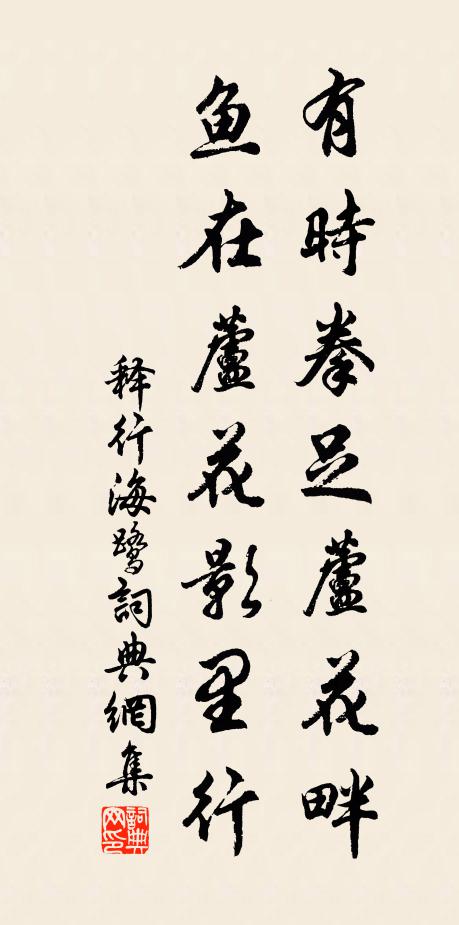 有時拳足蘆花畔
鱼在蘆花影里行
释行海鷺詞典網集
詞典
网印